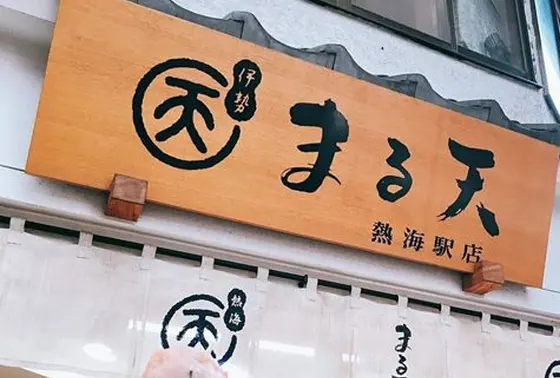 天
伊勢
まる天
熱海駅店
天
熱海
まる天